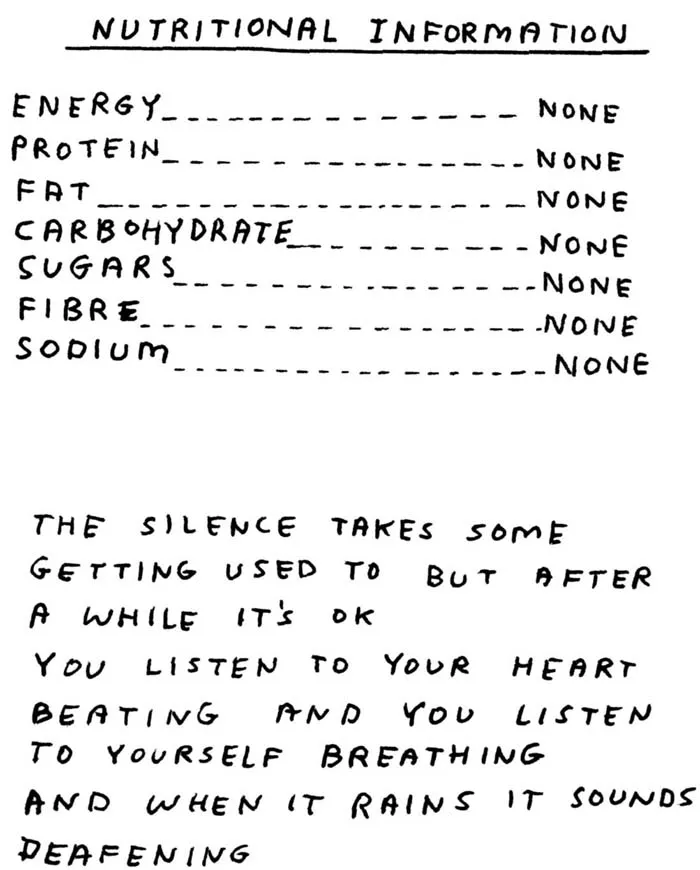 NUTRITIONAL INFORMATION
ENERGY_______________ NONE
PROTEIN_______________ NONE
FAT_______________ NONE
CARBOHYDRATE_______________ NONE
SUGARS_______________ NONE
FIBRE_______________ NONE
SODIUM_______________ NONE
THE SILENCE TAKES SOME
GETTING USED TO BUT AFTER
A WHILE IT'S OK
YOU LISTEN TO YOUR HEART
BEATING AND YOU LISTEN
TO YOURSELF BREATHING
AND WHEN IT RAINS IT SOUNDS
DEAFENING